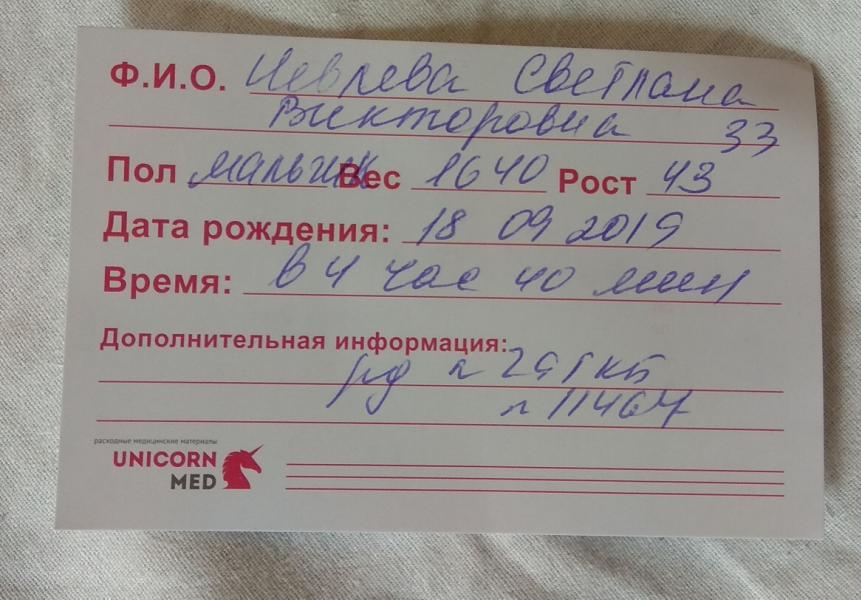 Ф.И.О. Иевлева Светлана
Викторовна 33
Пол мальчик Вес 1640 Рост 43
Дата рождения: 18 09 2019
Время: в 4 час 40 мин
Дополнительная информация:
рд
n 11467
расходные медицинские материалы
UNICORN
MED